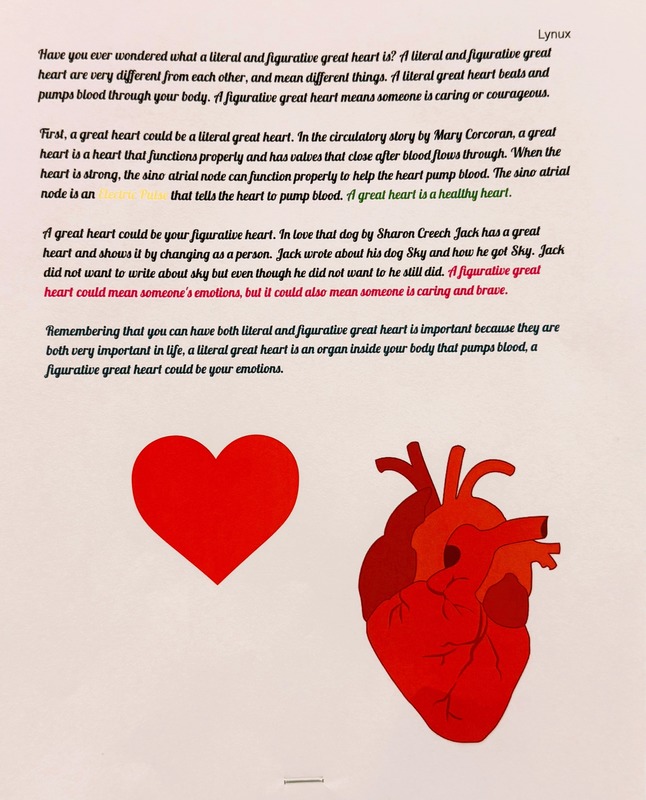 Lynux
Have you ever wondered what a literal and figurative great heart is? A literal and figurative great
heart are very different from each other, and mean different things. A literal great heart beats and
pumps blood through your body. A figurative great heart means someone is caring or courageous.
First, a great heart could be a literal great heart. In the circulatory story by Mary Corcoran, a great
heart is a heart that functions properly and has valves that close after blood flows through. When the
heart is strong, the sino atrial node can function properly to help the heart pump blood. The sino atrial
node is an Electric Pulse that tells the heart to pump blood. A great heart is a healthy heart.
A great heart could be your figurative heart. In love that dog by Sharon Creech Jack has a great
heart and shows it by changing as a person. Jack wrote about his dog Sky and how he got Sky. Jack
did not want to write about sky but even though he did not want to he still did. A figurative great
heart could mean someone's emotions, but it could also mean someone is caring and brave.
Remembering that you can have both literal and figurative great heart is important because they are
both very important in life, a literal great heart is an organ inside your body that pumps blood, a
figurative great heart could be your emotions.